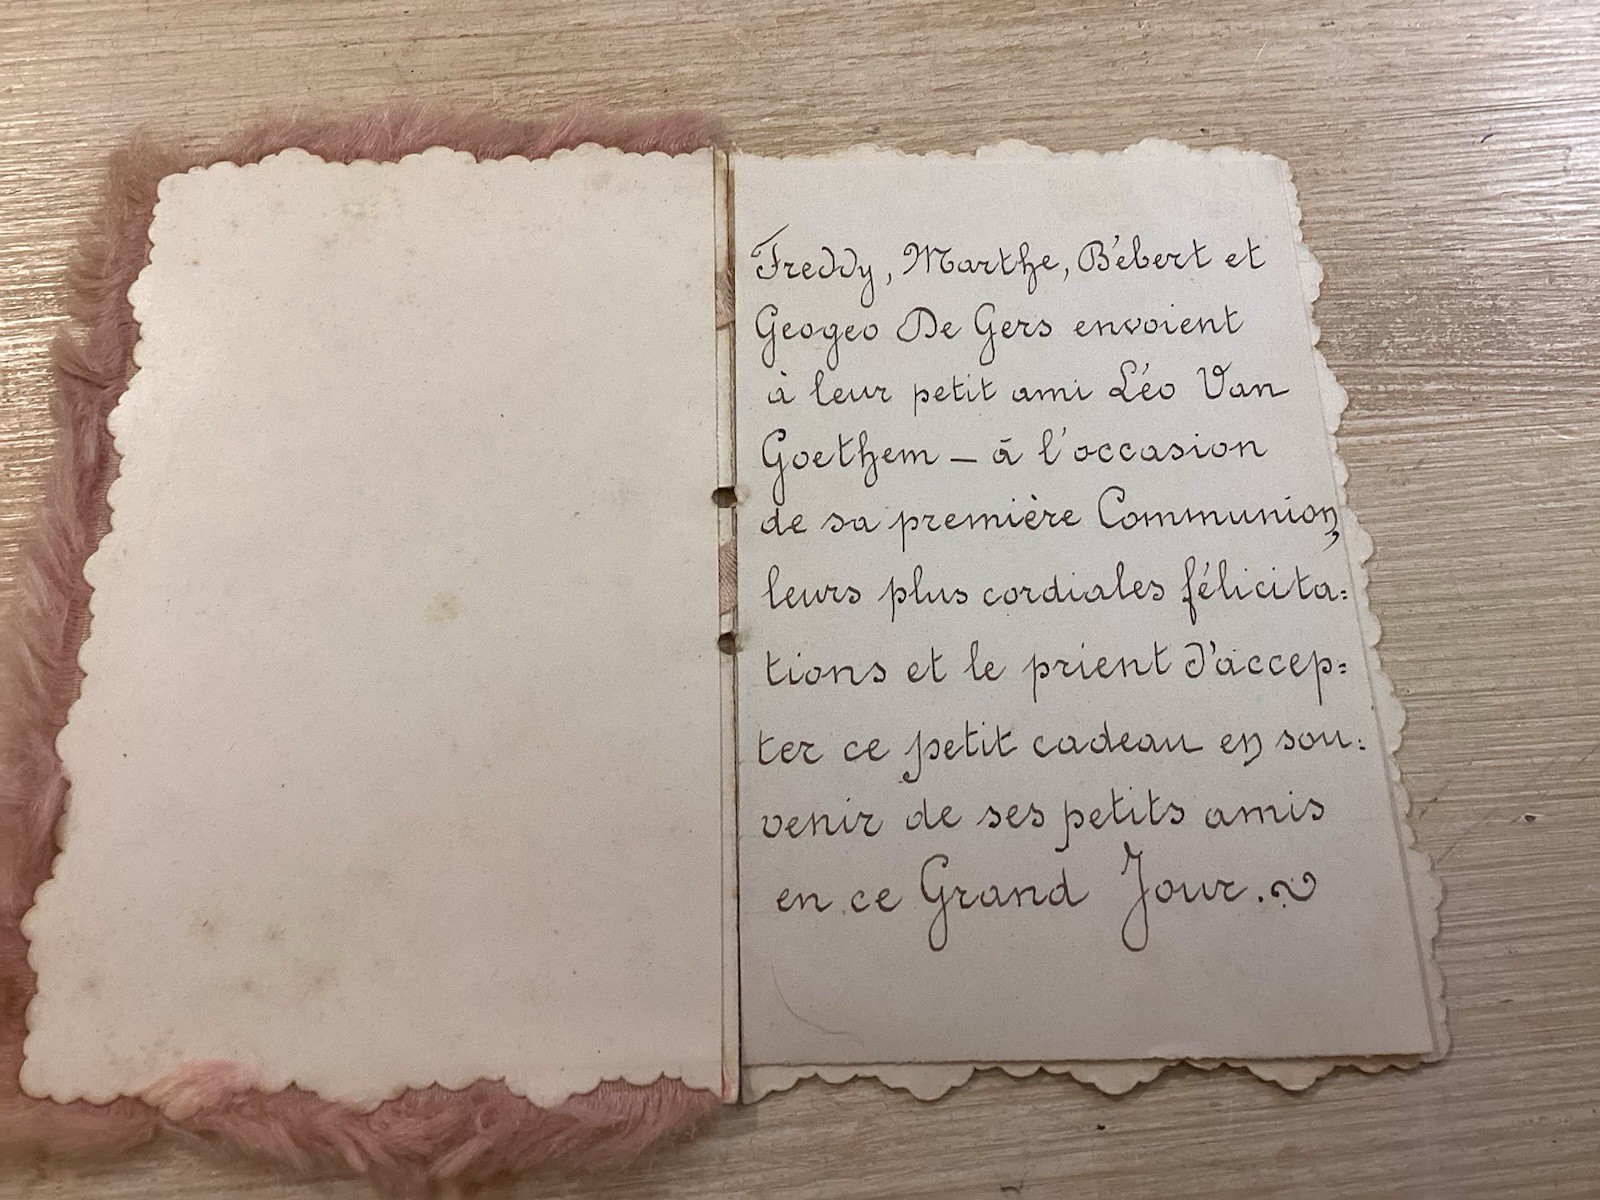 Freddy, Marthe, Bébert et
Geogeo De Gers envoient
à leur petit ami Léo Van
Goethem _ à l'occasion
de sa première Communion,
leurs plus cordiales félicita=
tions et le prient d'accep=
ter ce petit cadeau en sou=
venir de ses petits amis
en ce Grand Jour.